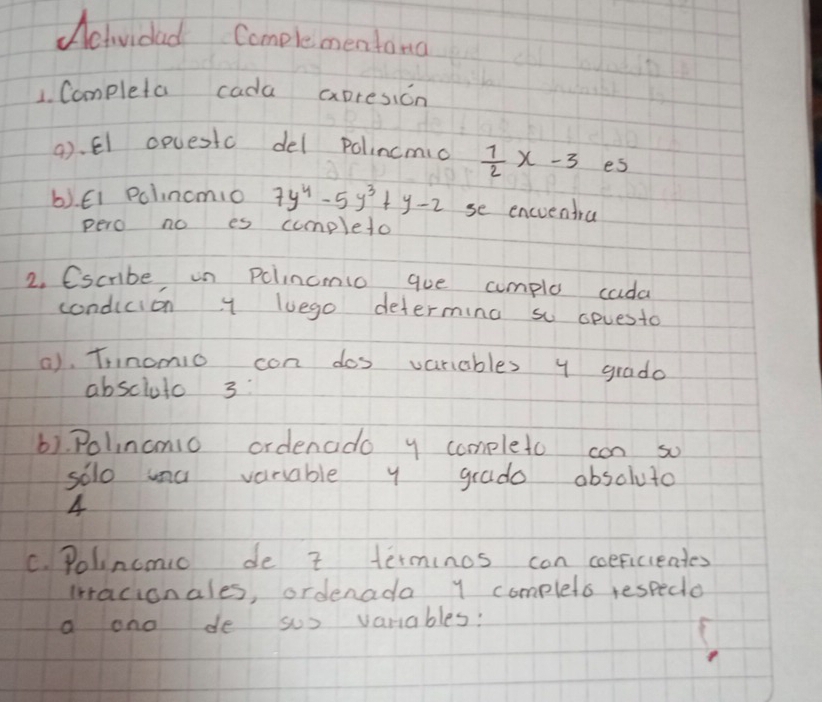 Actividad Complementaria
1. Completa cada expresión
a). El opuesto del Polinomio 1/2 x - 3 es
b). El Polinomio 7y⁴ - 5y³ + y - 2 se encuentra
pero no es completo
2. Escribe un Polinomio que cumpla cada
condición y luego determina su opuesto
a). Trinomio con dos variables y grado
absoluto 3:
b). Polinomio ordenado y completo con su
sólo una variable y grado absoluto
4
c. Polinomio de 7 términos con coeficientes
irracionales, ordenada y completo respecto
a una de sus variables: